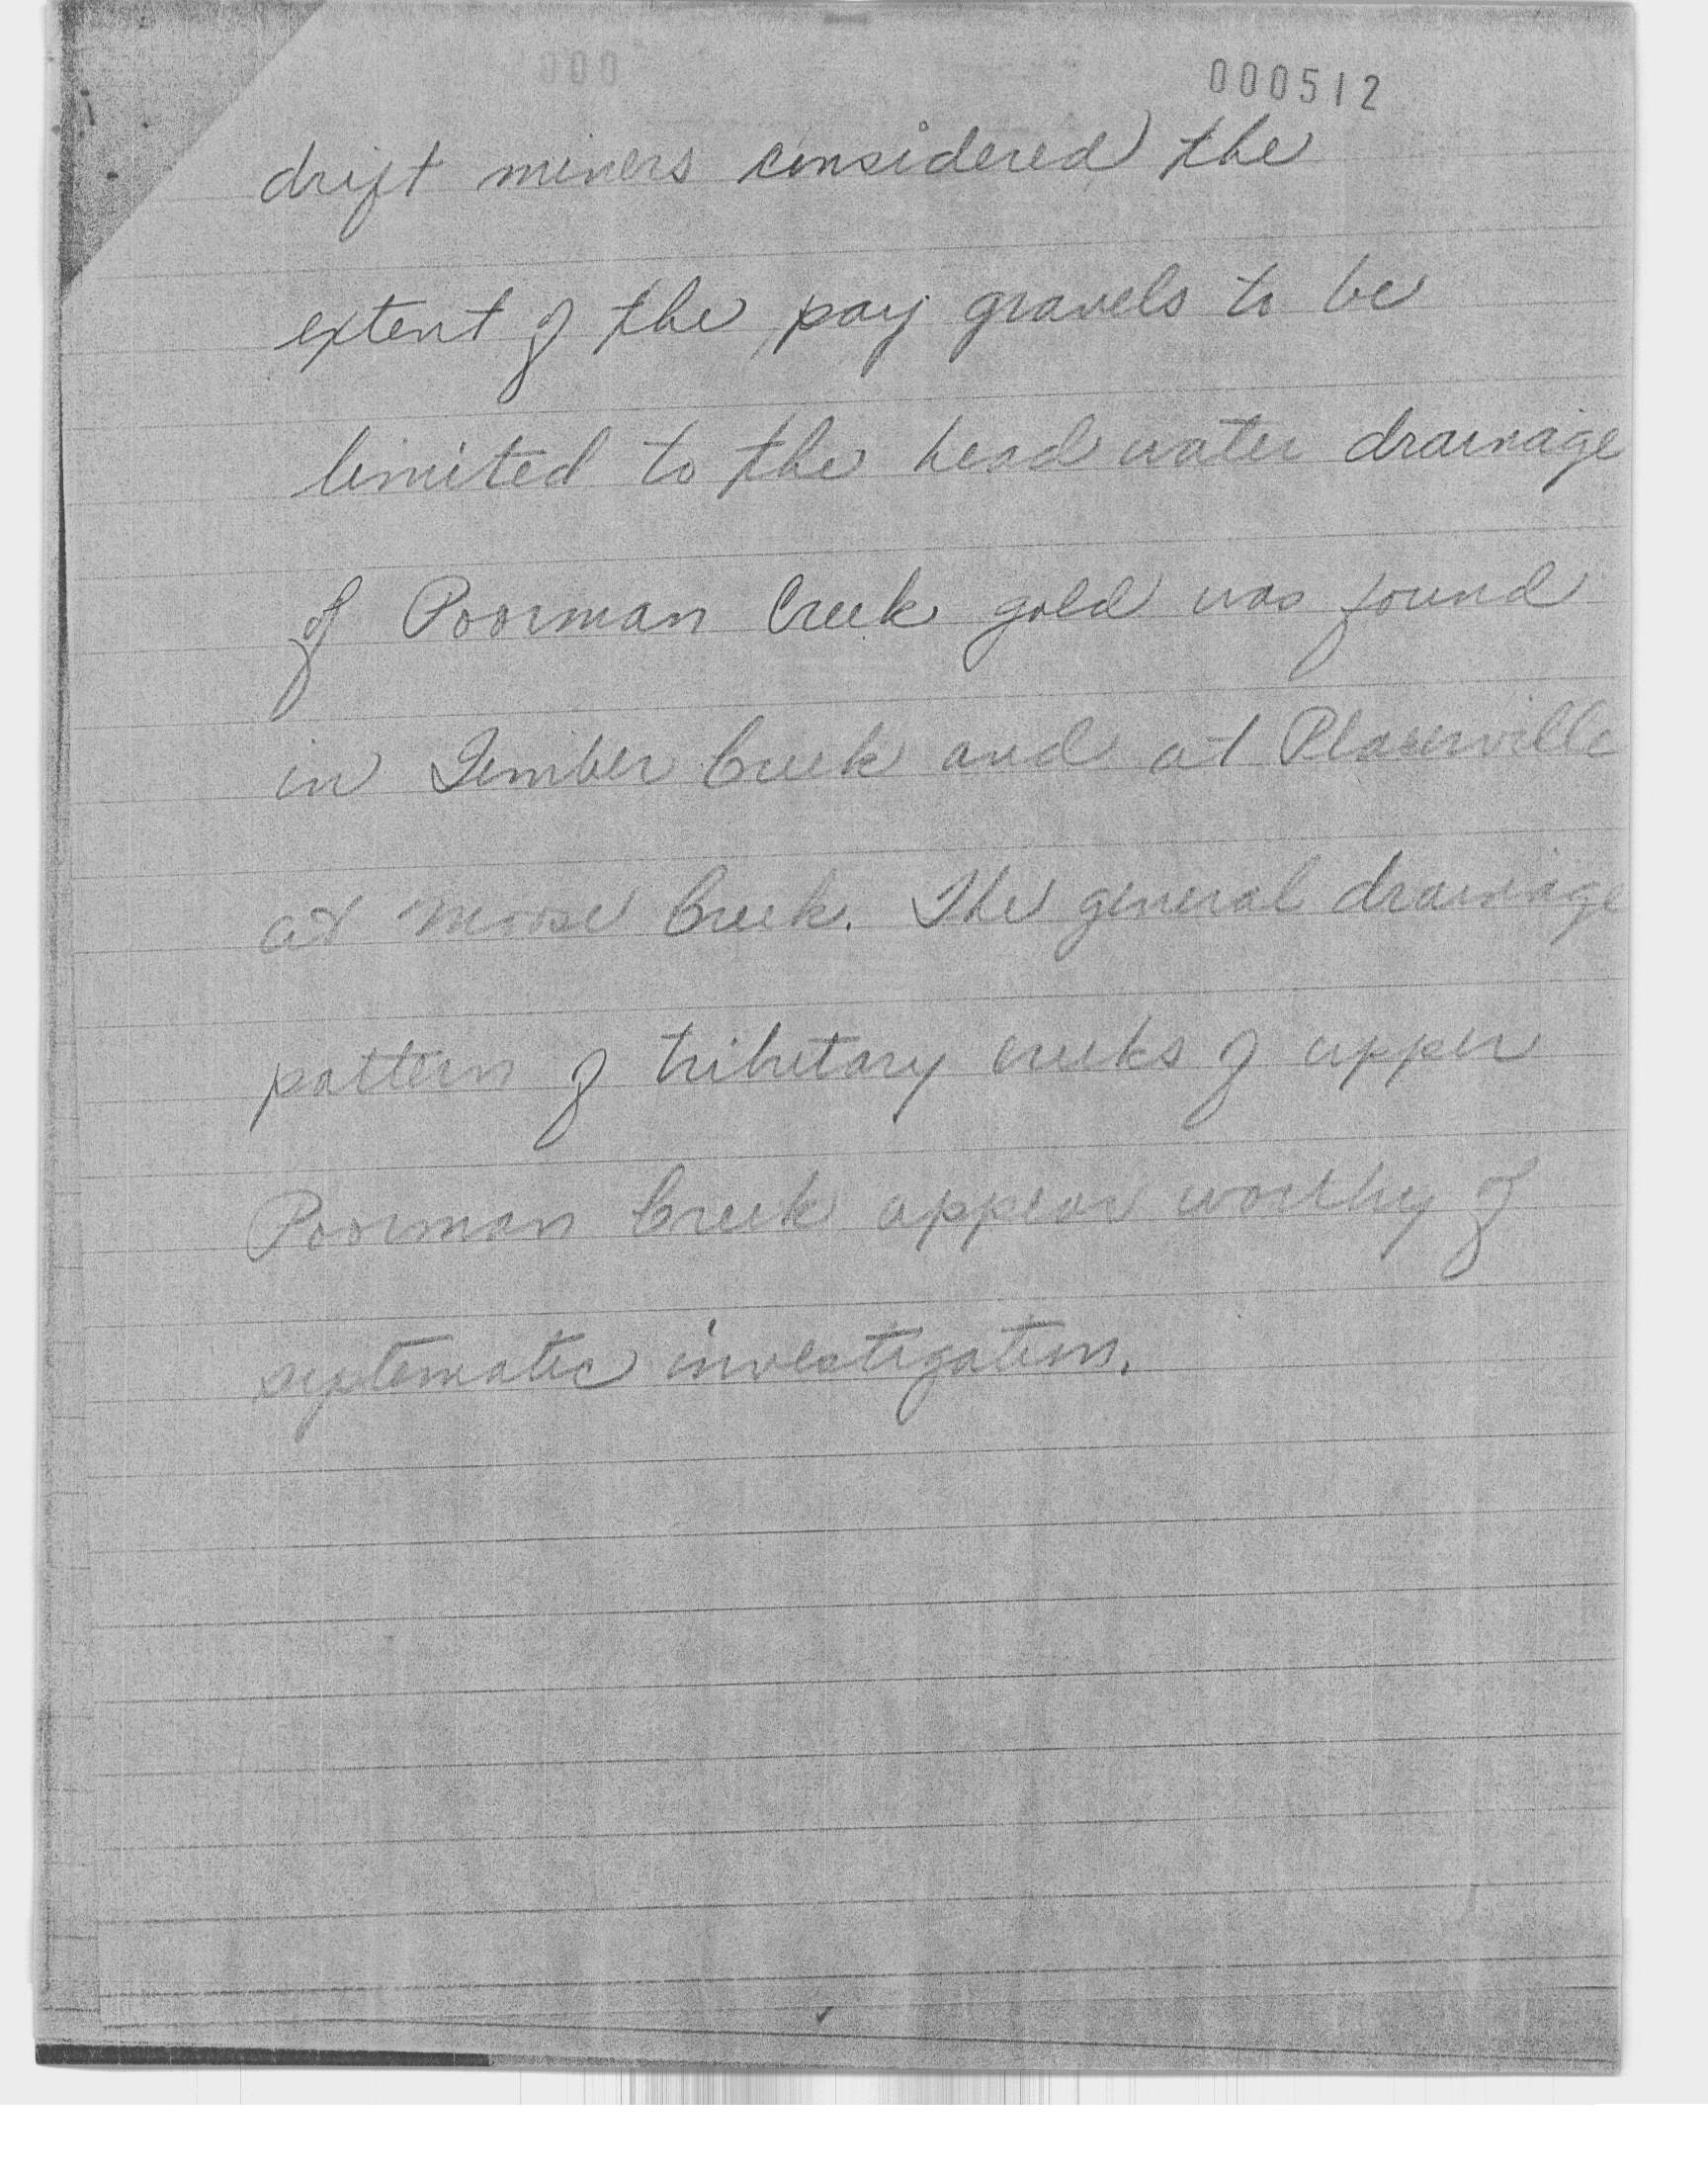 000512
drift miners considered the
extent of the pay gravels to be
limited to the head water drainage
of Poorman Creek gold was found
in Timber Creek and at Placerville
at Moose Creek. The general drainage
pattern of tributary creeks of upper
Poorman Creek appear worthy of
systematic investigation.